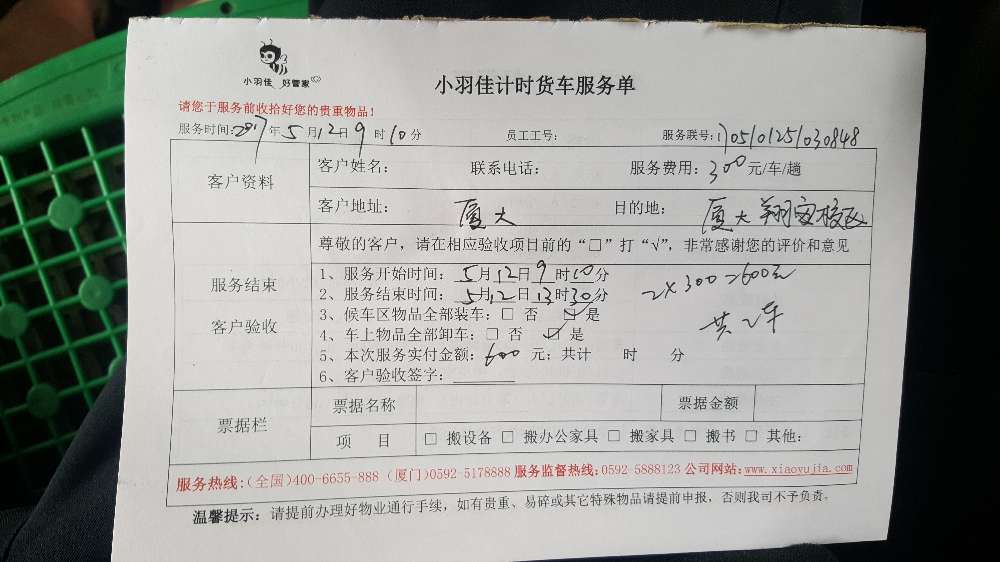 小羽佳 好管家
小羽佳计时货车服务单
请您于服务前收拾好您的贵重物品!
服务时间:2017年5月12日9时10分 员工工号: 服务联号:170501251030848
客户资料
客户姓名: 联系电话: 服务费用:300元/车/趟
客户地址: 厦大 目的地: 厦大翔安校区
服务结束
客户验收
尊敬的客户,请在相应验收项目前的“□”打“√”,非常感谢您的评价和意见
1、服务开始时间: 5月12日9时10分
2、服务结束时间: 5月12日13时30分
3、候车区物品全部装车:□ 否 ☑ 是
4、车上物品全部卸车:□ 否 ☑ 是
5、本次服务实付金额:600 元;共计 时 分
6、客户验收签字:
2×300=600元
共2车
票据栏
票据名称 票据金额
项 目 □ 搬设备 □ 搬办公家具 □ 搬家具 □ 搬书 □ 其他:
服务热线:(全国)400-6655-888 (厦门)0592-5178888 服务监督热线:0592-5888123 公司网站:www.xiaoyujia.com
温馨提示:请提前办理好物业通行手续,如有贵重、易碎或其它特殊物品请提前申报,否则我司不予负责。